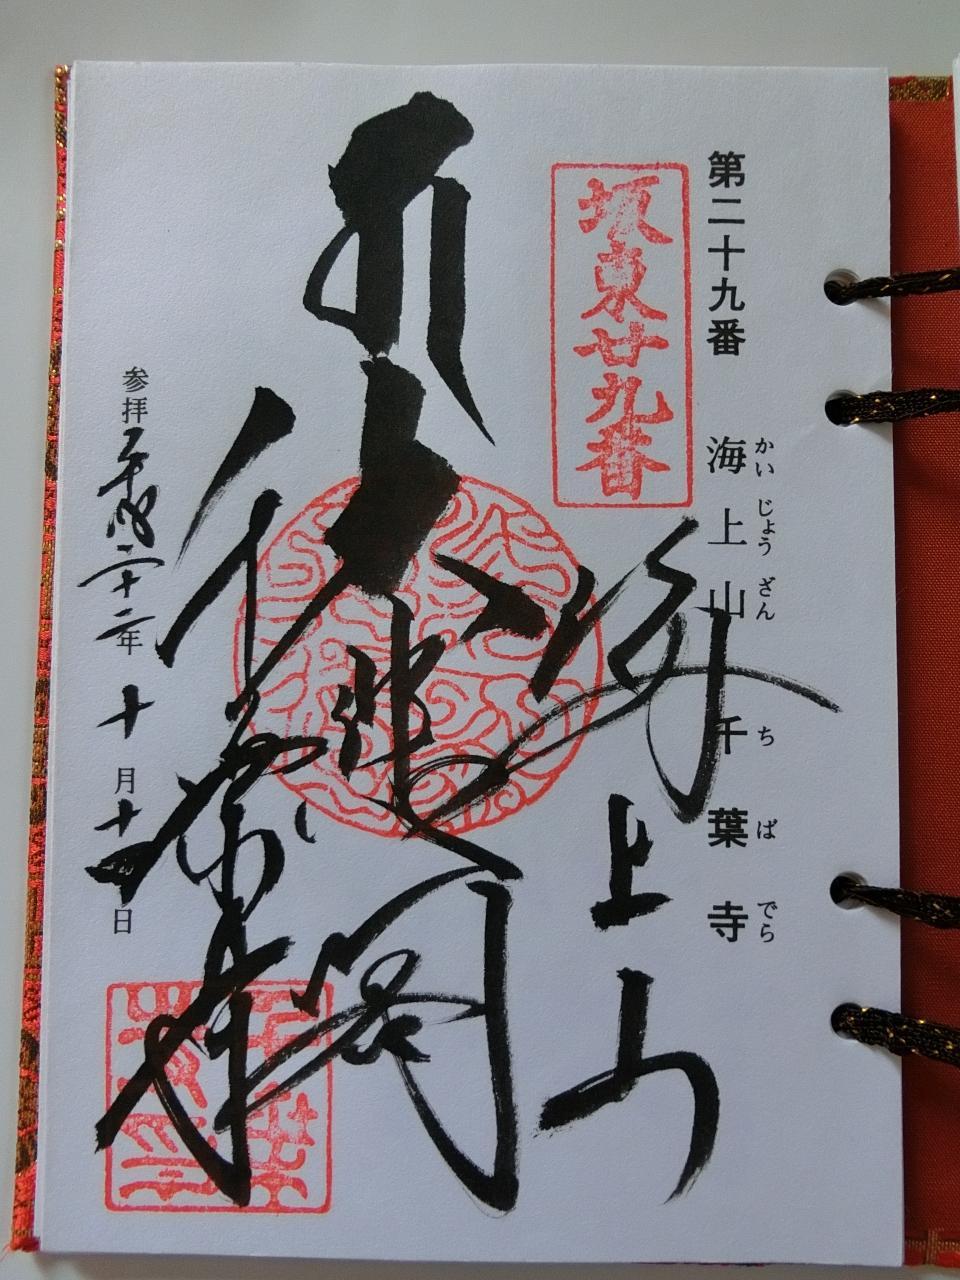 第二十九番 海上山 千葉寺
かいじょうざん ちばでら
坂東廿九番
海上山
大悲閣
千葉寺
参拝平成二十二年十月十一日